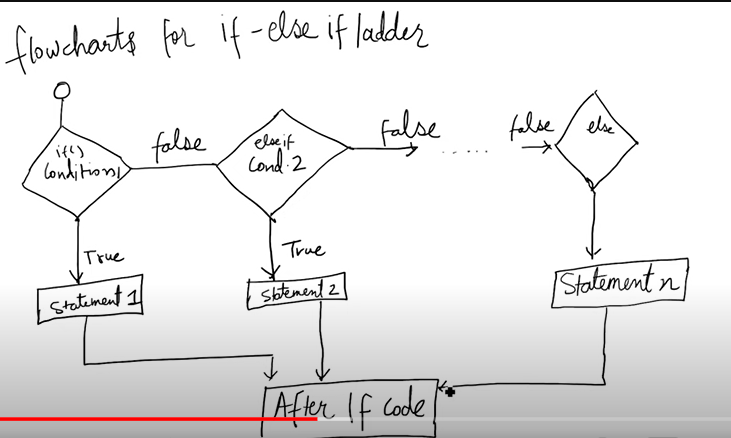 flowcharts for if-else if ladder
if()
Conditions1
false
else if
Cond. 2
false
.....
false
else
True
True
Statement 1
Statement 2
Statement n
After If code